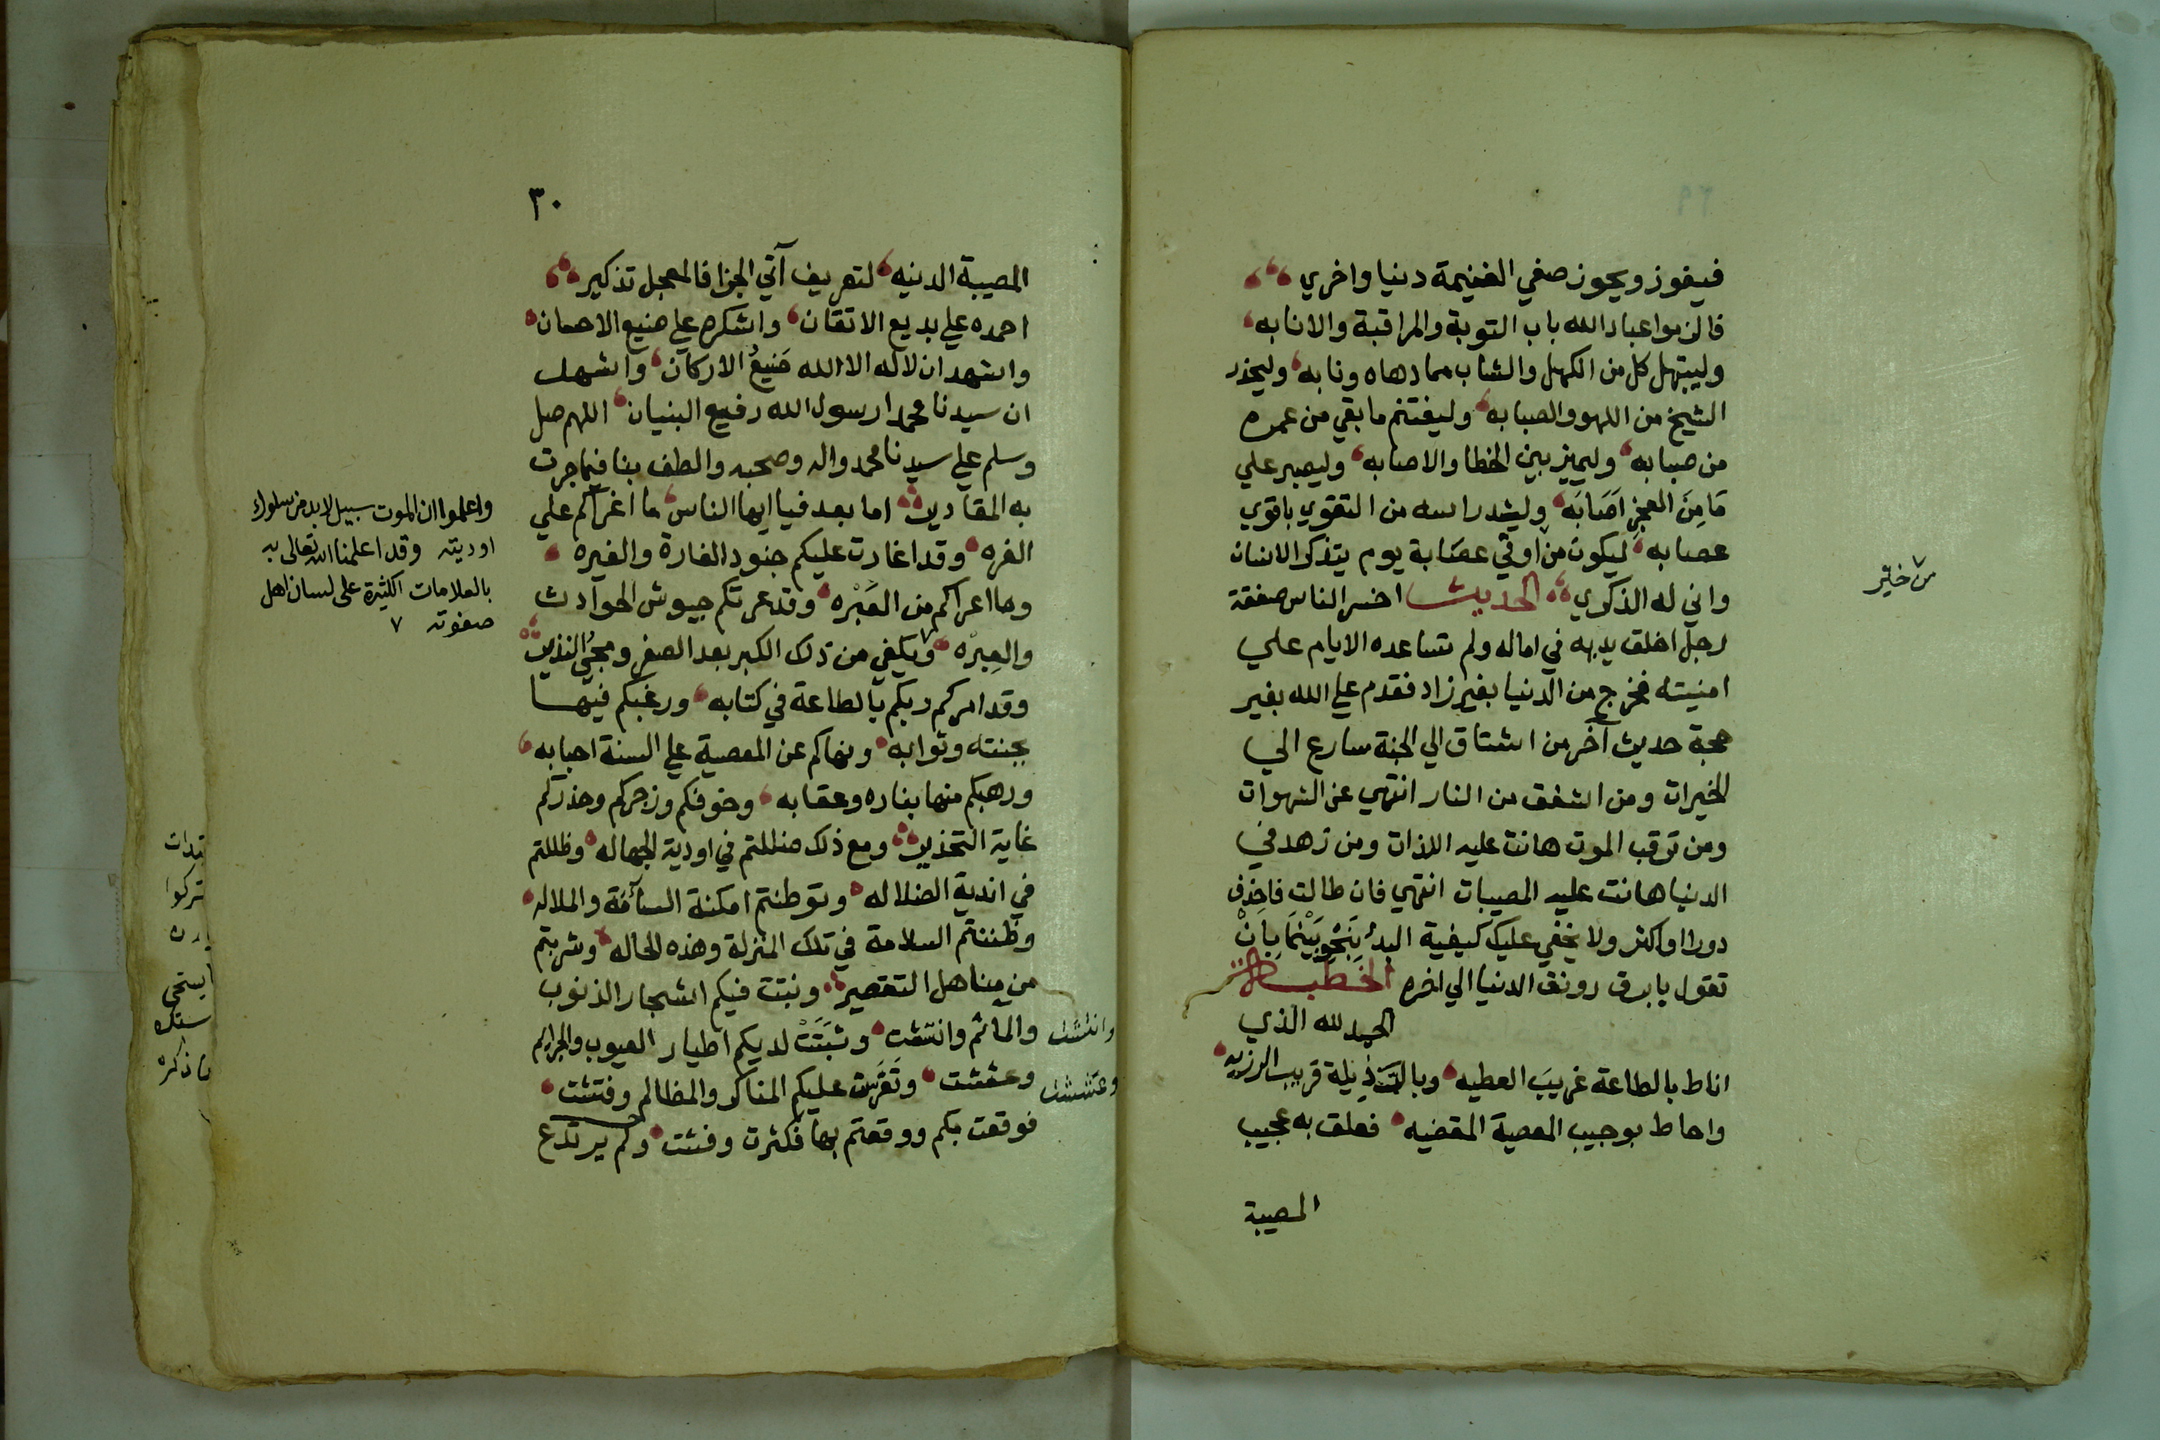 فيفوز ويحوز صفي الغنيمة دنيا واخري
فالزموا عباد الله باب التوبة والمراقبة والانابه
وليبتهل كل من الكهل والشاب مما دهاه ونابه وليحذر
الشيخ من اللهو والصبابه وليغتنم ما بقي من عمره
من صبابه وليميز بين الخطا والاصابه وليصبر علي
مَا مِنَ العجزِ اَصَابَه وليشد راسه من التقوي باقوي
عصابه ليكون من اوفي عصَابة يوم يتذكر الانسان
واني له الذكري الحديث اخسر الناس صفقة
رجل اخلق يديه في اماله ولم تساعده الايام علي
امنيته فخرج من الدنيا بغير زاد فقدم علي الله بغير
حجة حديث آخر من اشتاق الي الجنة سارع الي
الخيرات ومن اشفق من النار انتهي عن الشهوات
ومن ترقب الموت هانت عليه اللذات ومن زهد في
الدنيا هانت عليه المصيبات انتهي فان طالت فاحذف
دورا او اكثر ولا يخفي عليك كيفية البدء بِنَحْوِ بَيْنَمَا بِاَنْ
تقول يا برق رونق الدنيا الي اخره الخطبة
الحمد لله الذي
اناط بالطاعة غريبَ العطيه وبالتذيلة قريب الرزيه
واحاط بوجيب المعصية المقضيه فعلق به عجيب
المصيبة
من خاتير
٢٩
٣٠
المصيبة الدنيه لتعريف آتي الجزا فالمعجل تذكير
احمده علي بديع الاتقان واشكره علي صنيع الاحسان
واشهد ان لا اله الا الله مَنيعُ الاركان واشهد
ان سيدنا محمدا رسول الله رفيع البنيان اللهم صل
وسلم علي سيدنا محمد واله وصحبه والطف بنا فيما جرت
به المقادير اما بعد فيا ايها الناس ما اغراكم علي
الغره وقد اغارت عليكم جنود الغارة والغيره
وما اعراكم من العَبْره وقد عرتكم جيوش الحوادث
والعِبْره ويكفي من ذلك الكبر بعد الصغر ومجئ النذير
وقد امركم ربكم بالطاعة في كتابه ورغبكم فيها
بجنته وثوابه ونهاكم عن المعصية علي السنة احبابه
ورهبكم منها بناره وعقابه وخوفكم وزجركم وحذركم
غاية التحذير ومع ذلك ضللتم في اودية الجهاله وظللتم
في اندية الضلاله وتوطنتم امكنة السآمة والملاله
وظننتم السلامة في تلك المنزلة وهذه الحاله وشربتم
من مناهل التقصير ونبتت فيكم اشجار الذنوب
والمآثم وانتشت وثَبَتَتْ لديكم اطيار العيوب والجرايم
وعششت وتَفَرَّسَت عليكم المناكر والمظالم وفتشت
فوقعت بكم ووقعتم بها فكثرت وفشت ولم يرتدع
واعلموا ان الموت سبيل لابد من سلوك
اوديته وقد اعلمنا الله تعالى به
بالعلامات الكثيرة على لسان اهل
صفوته
وانتشت
وعششت